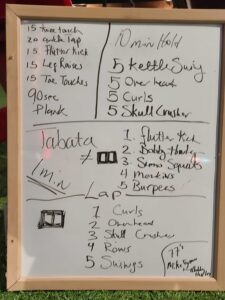 15 toe touch
20 ankle tap
15 Flutter Kick
15 Leg Raises
15 Toe Touches
90 sec
Plank
10 min Hold
5 Kettle Swing
5 Overhead
5 Curls
5 Skull Crusher
Tabata
1 min
1. Flutter Kick
3. Sumo Squats
5 Burpees
Lap
1 Curls
2 Overhead
3 Skull Crusher
4 Rows
5 Swings